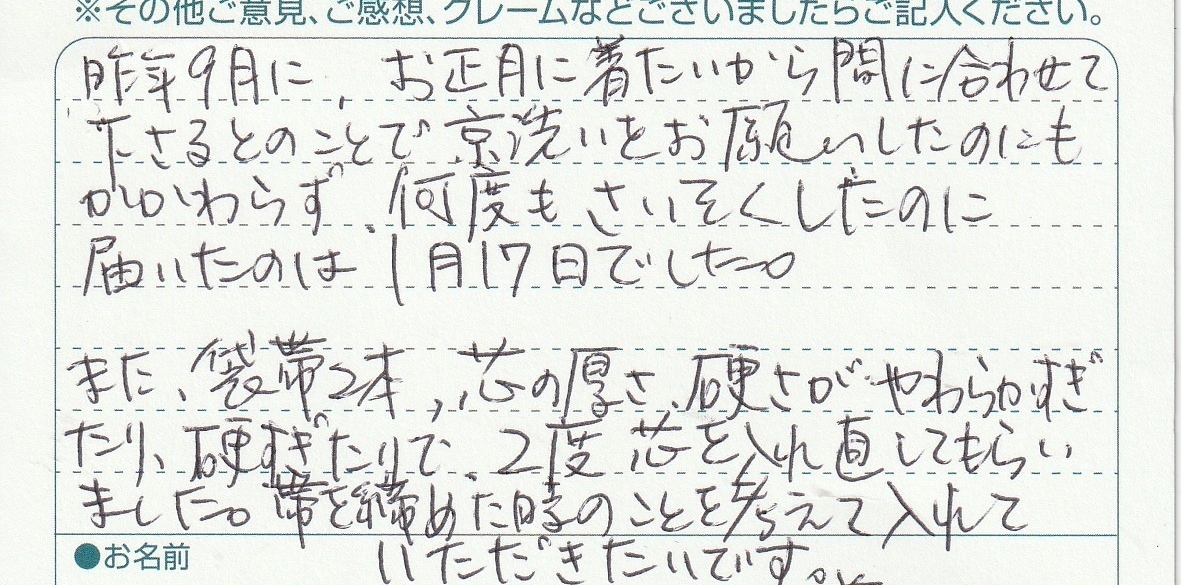 ※その他ご意見、ご感想、クレームなどございましたらご記入ください。
昨年9月に、お正月に着たいから間に合わせて
下さるとのことで京洗いをお願いしたのにも
かかわらず、何度もさいそくしたのに
届いたのは1月17日でした。
また、袋帯2本、芯の厚さ、硬さがやわらかすぎ
たり、硬すぎたりで、2度芯を入れ直してもらい
ました。帯を締めた時のことを考えて入れて
●お名前
いただきたいです。